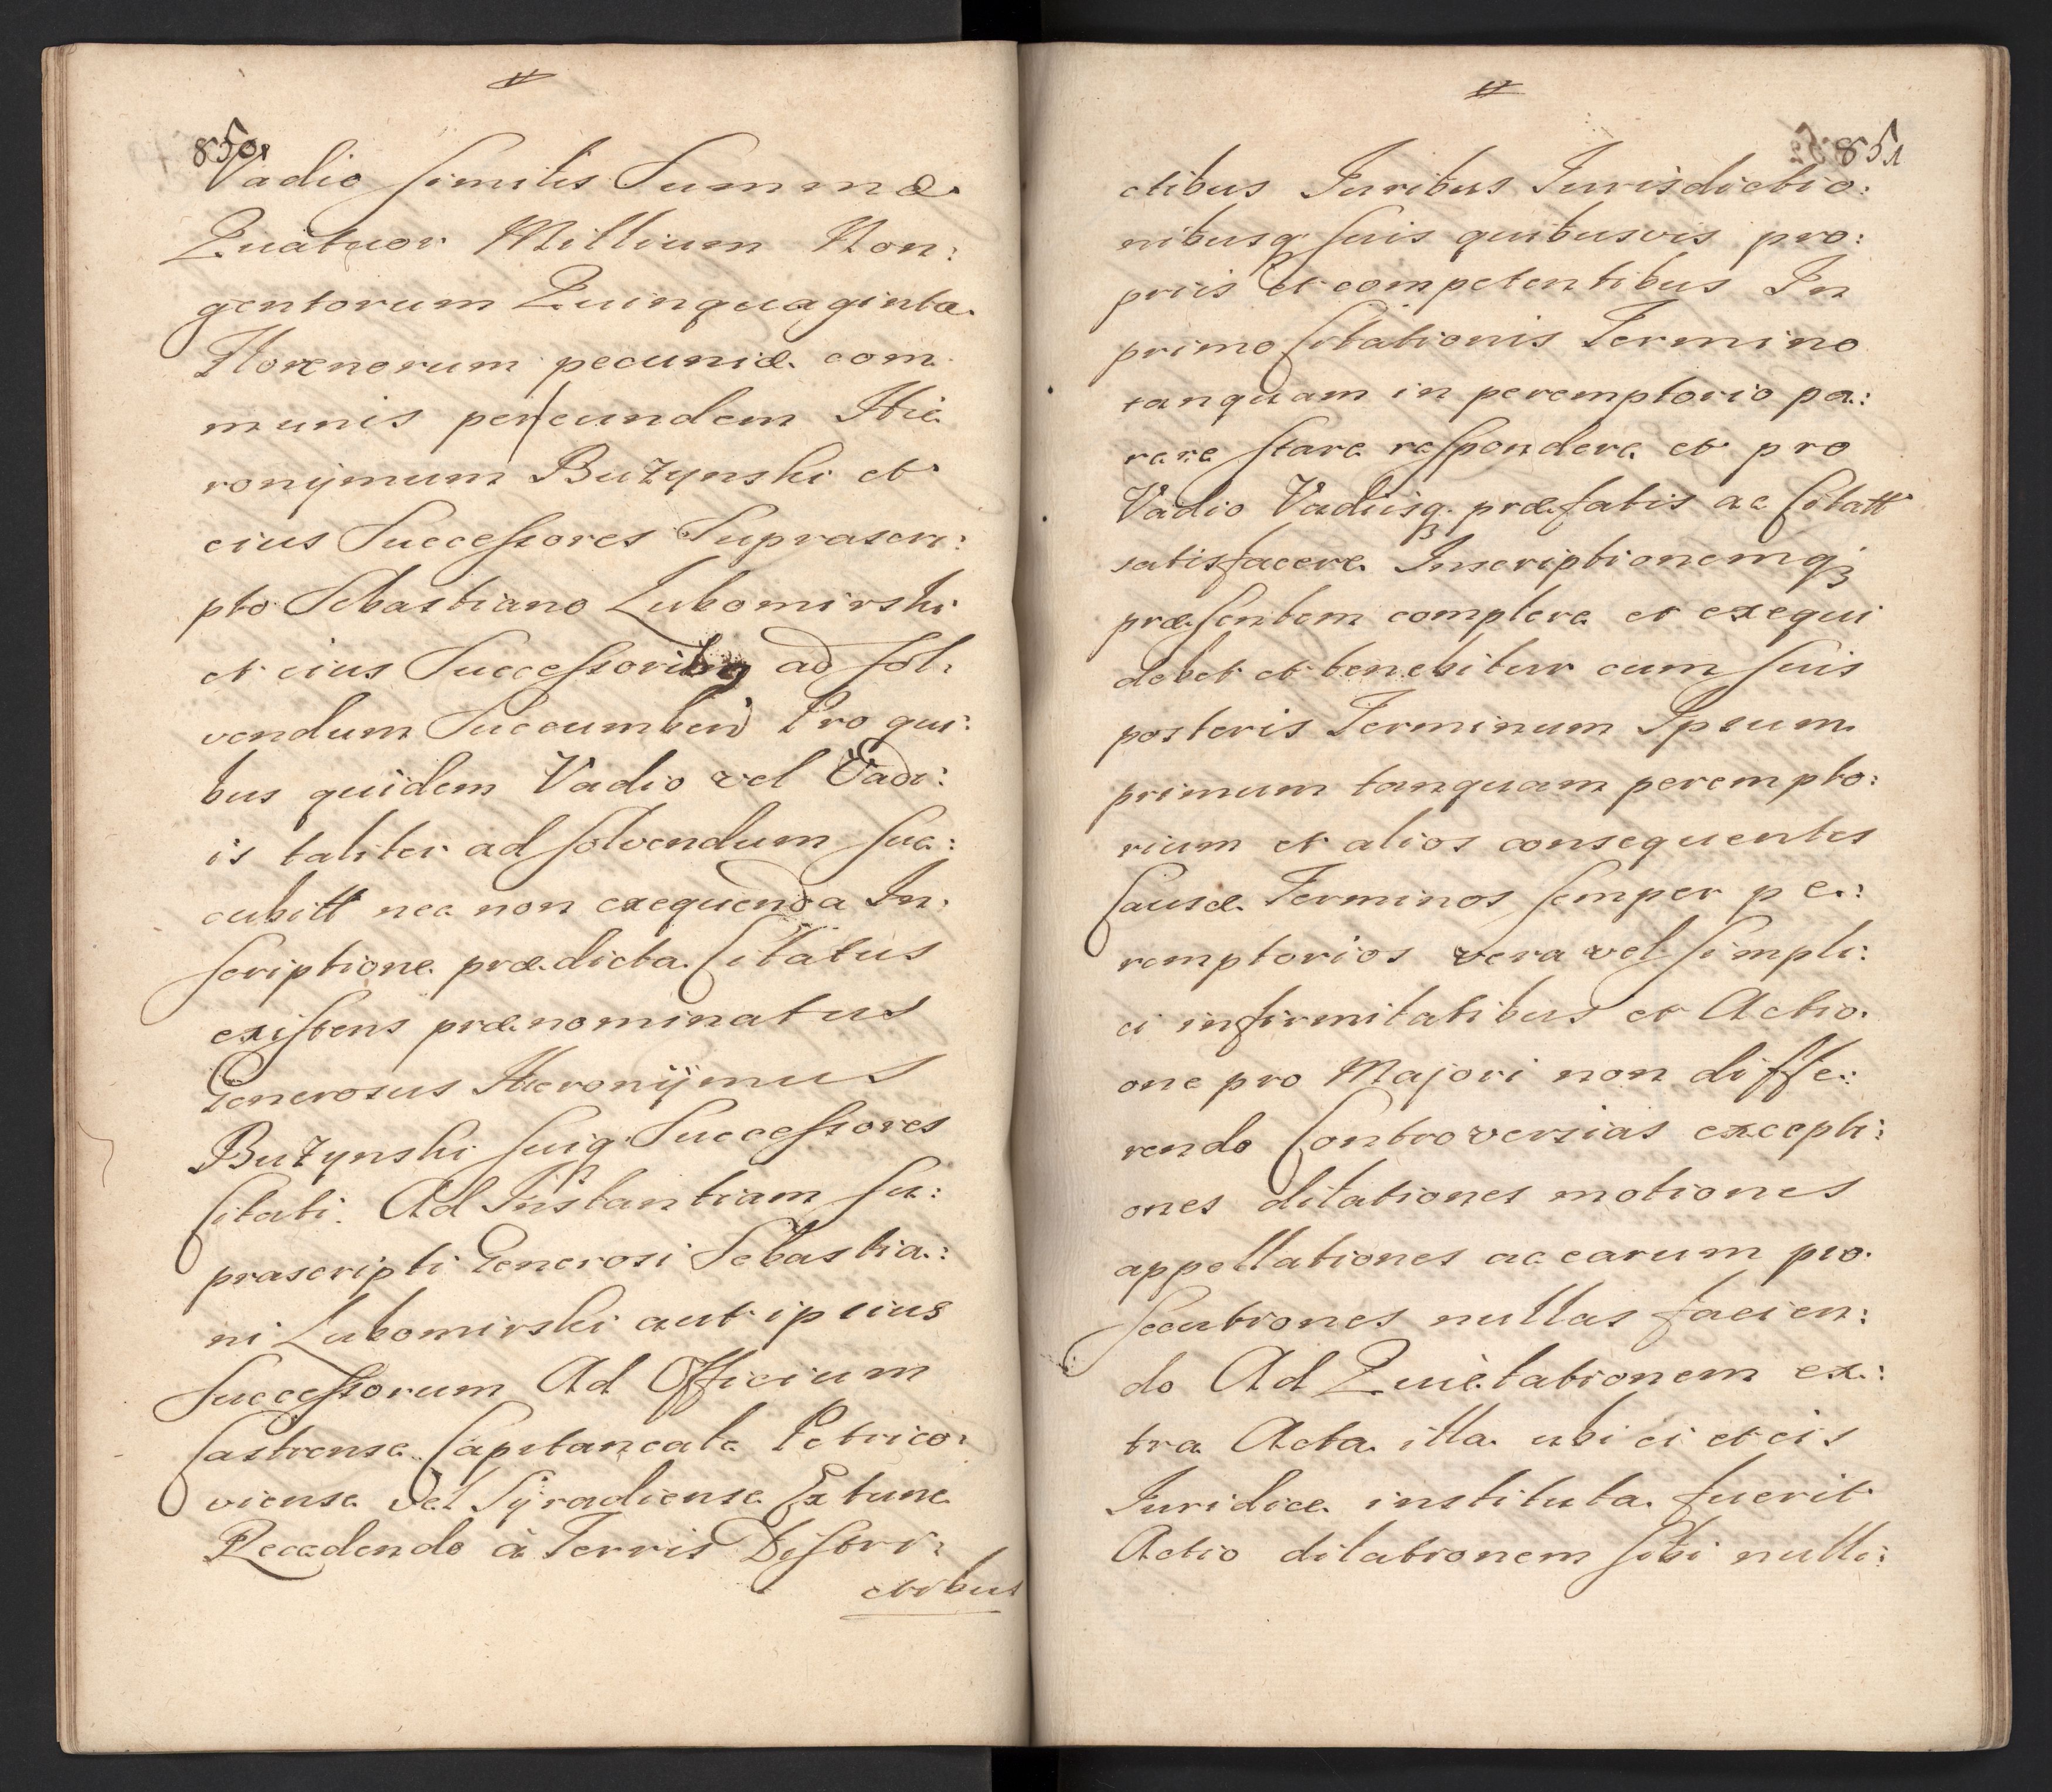 850
Vadio similis Summæ
Quatuor Millium Non:
gentorum Quinquaginta
Florenorum pecuniæ com
munis per eundem Hie
ronijmum Bużynski et
eius Successores Suprascri:
pto Sebastiano Lubomirski
et eius Successoribq ad sol:
vendum Succumben Pro qui:
bus quidem Vadio vel Vadi:
is taliter ad solvendum suc:
cubitt nec non exequenda In:
scriptione prædicta Citatus
existens prænominatus
Generosus Hieronijmus
Bużynski suiq Successores
Citati. Ad Instantiam su:
prascripti Generosi Sebastia:
ni Lubomirski aut ipsius
Successorum Ad Officium
Castrense Capitaneale Petrico:
viense vel Syradiense Ex tunc
Recedendo à Terris Distri:
ctibus
851
ctibus Iuribus Iurisdictio:
nibusq suis quibusvis pro:
priis et competentibus In
primo Citationis Termino
tanquam in peremptorio pa:
rere stare respondere et pro
Vadio Vadiisq præfatis ac Citatt
satisfacere Inscriptionemq;
præsentem complere et exequi
debet et tenebitur cum suis
posteris Terminum Ipsum
primum tanquam perempto:
rium et alios consequentes
Causæ Terminos semper pe:
remptorios vera vel simpli:
ci infirmitatibus et Actio
one pro Majori non diffe:
rendo Controversias excepti:
ones dilationes motiones
appellationes ac earum pro
secutiones nullas facien:
do Ad Quietationem ex:
tra Acta illa ubi ei et eis
Iuridice instituta fuerit
Actio dilationem sibi nulli: